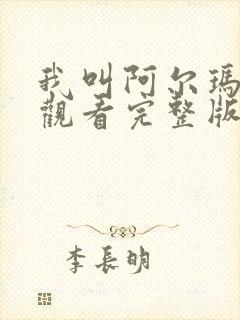 我叫阿尔瑪
觀看完整版
李長明